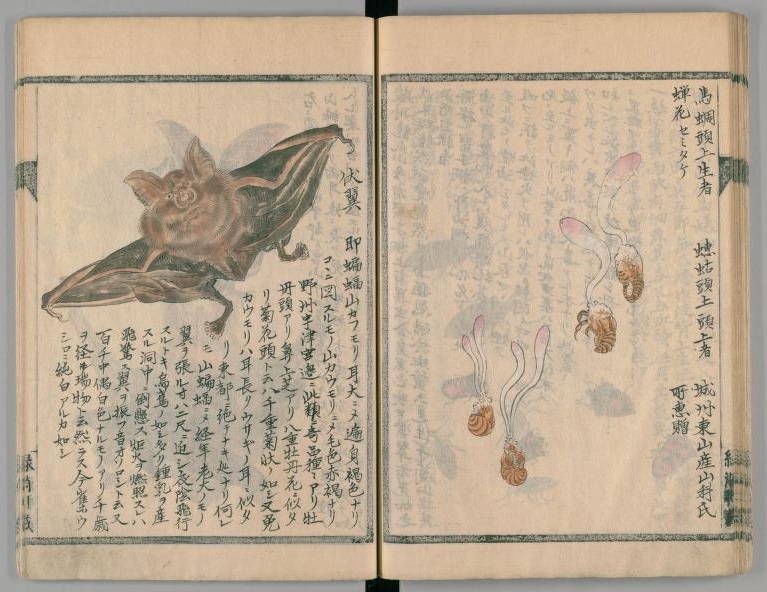 馬蜩頭上生者
蟬花 セミタケ
蟪蛄頭上頭上者
城州東山産山科氏
所恵贈
伏翼
即蝙蝠山カフモリ耳大ニメ遍身褐色ナリ
コヽニ図スルモノ山カウモリニメ毛色赤褐ナリ
野州宇津宮邊ニ此類ニ奇品種々アリ牡
丹頭アリ鼻上芝アリ八重牡丹花ニ似タ
リ菊花頭ト云八千重菊状ノ如シ又兎
カウモリハ耳長クウサギノ耳ニ似タ
リ東都ニ絶テナキ処ナリ何レ
モ山蝙蝠ニメ経年老大ノモノ
翼ヲ張ル寸ハ二尺ニ近シ夜陰飛行
スルトキ烏鳶ノ如シ夕リ鍾乳ヲ産
スル洞中ニ倒懸ス炬火ヲ燃照スレハ
飛驚ス翼ヲ振フ音オソロシト云又
百千中偶白色ナルモノアリ千歳
ヲ経ル瑞物ト云然ラス今雀ホウ
シロニ純白アルカ如シ